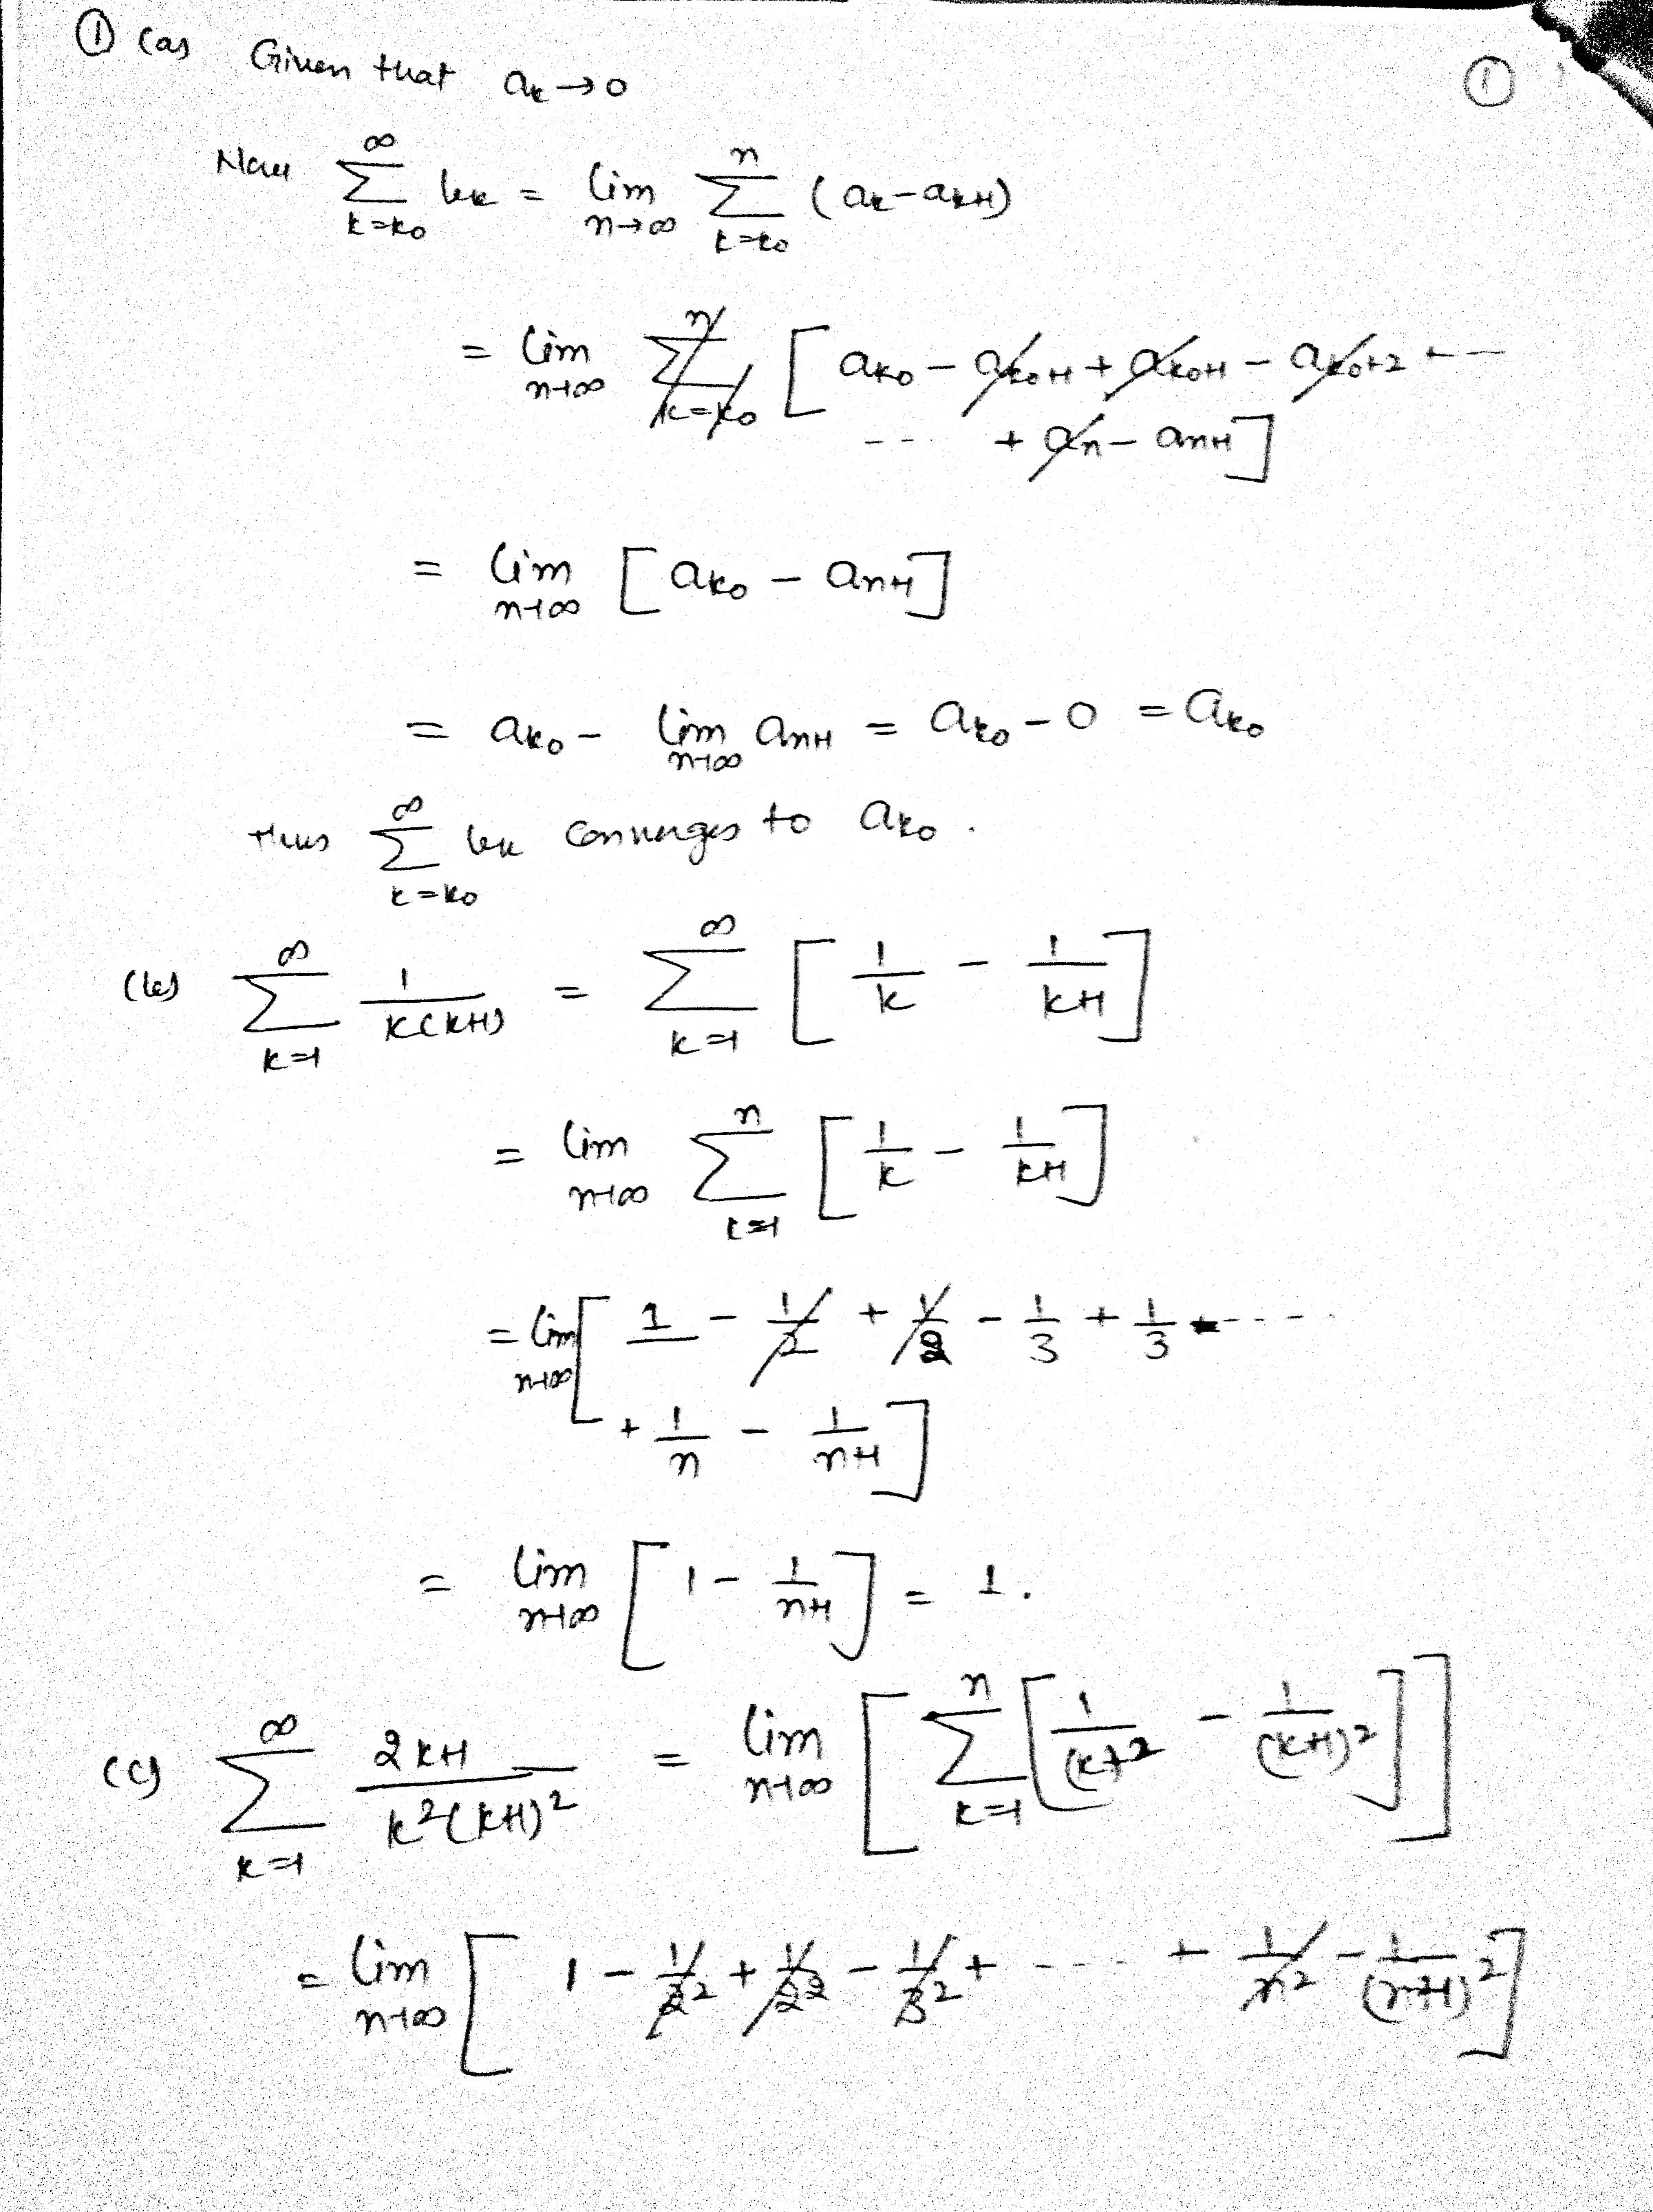 ① (a) Given that aₖ→0
①
Now ∞ Σ k=k₀ bₖ = lim n→∞ n Σ k=k₀ (aₖ-aₖ₊₁)
= lim n→∞ [ aₖ₀ - aₖ₀₊₁ + aₖ₀₊₁ - aₖ₀₊₂ + --
--- + aₙ - aₙ₊₁ ]
= lim n→∞ [ aₖ₀ - aₙ₊₁ ]
= aₖ₀ - lim n→∞ aₙ₊₁ = aₖ₀ - 0 = aₖ₀
thus ∞ Σ k=k₀ bₖ converges to aₖ₀ .
(b) ∞ Σ k=1 1/k(k+1) = ∞ Σ k=1 [ 1/k - 1/k+1 ]
= lim n→∞ n Σ k=1 [ 1/k - 1/k+1 ]
= lim n→∞ [ 1 - 1/2 + 1/2 - 1/3 + 1/3 ----
+ 1/n - 1/n+1 ]
= lim n→∞ [ 1 - 1/n+1 ] = 1.
(c) ∞ Σ k=1 2k+1/k²(k+1)² = lim n→∞ [ n Σ k=1 [ 1/(k)² - 1/(k+1)² ] ]
= lim n→∞ [ 1 - 1/2² + 1/2² - 1/3² + ---- + 1/n² - 1/(n+1)² ]